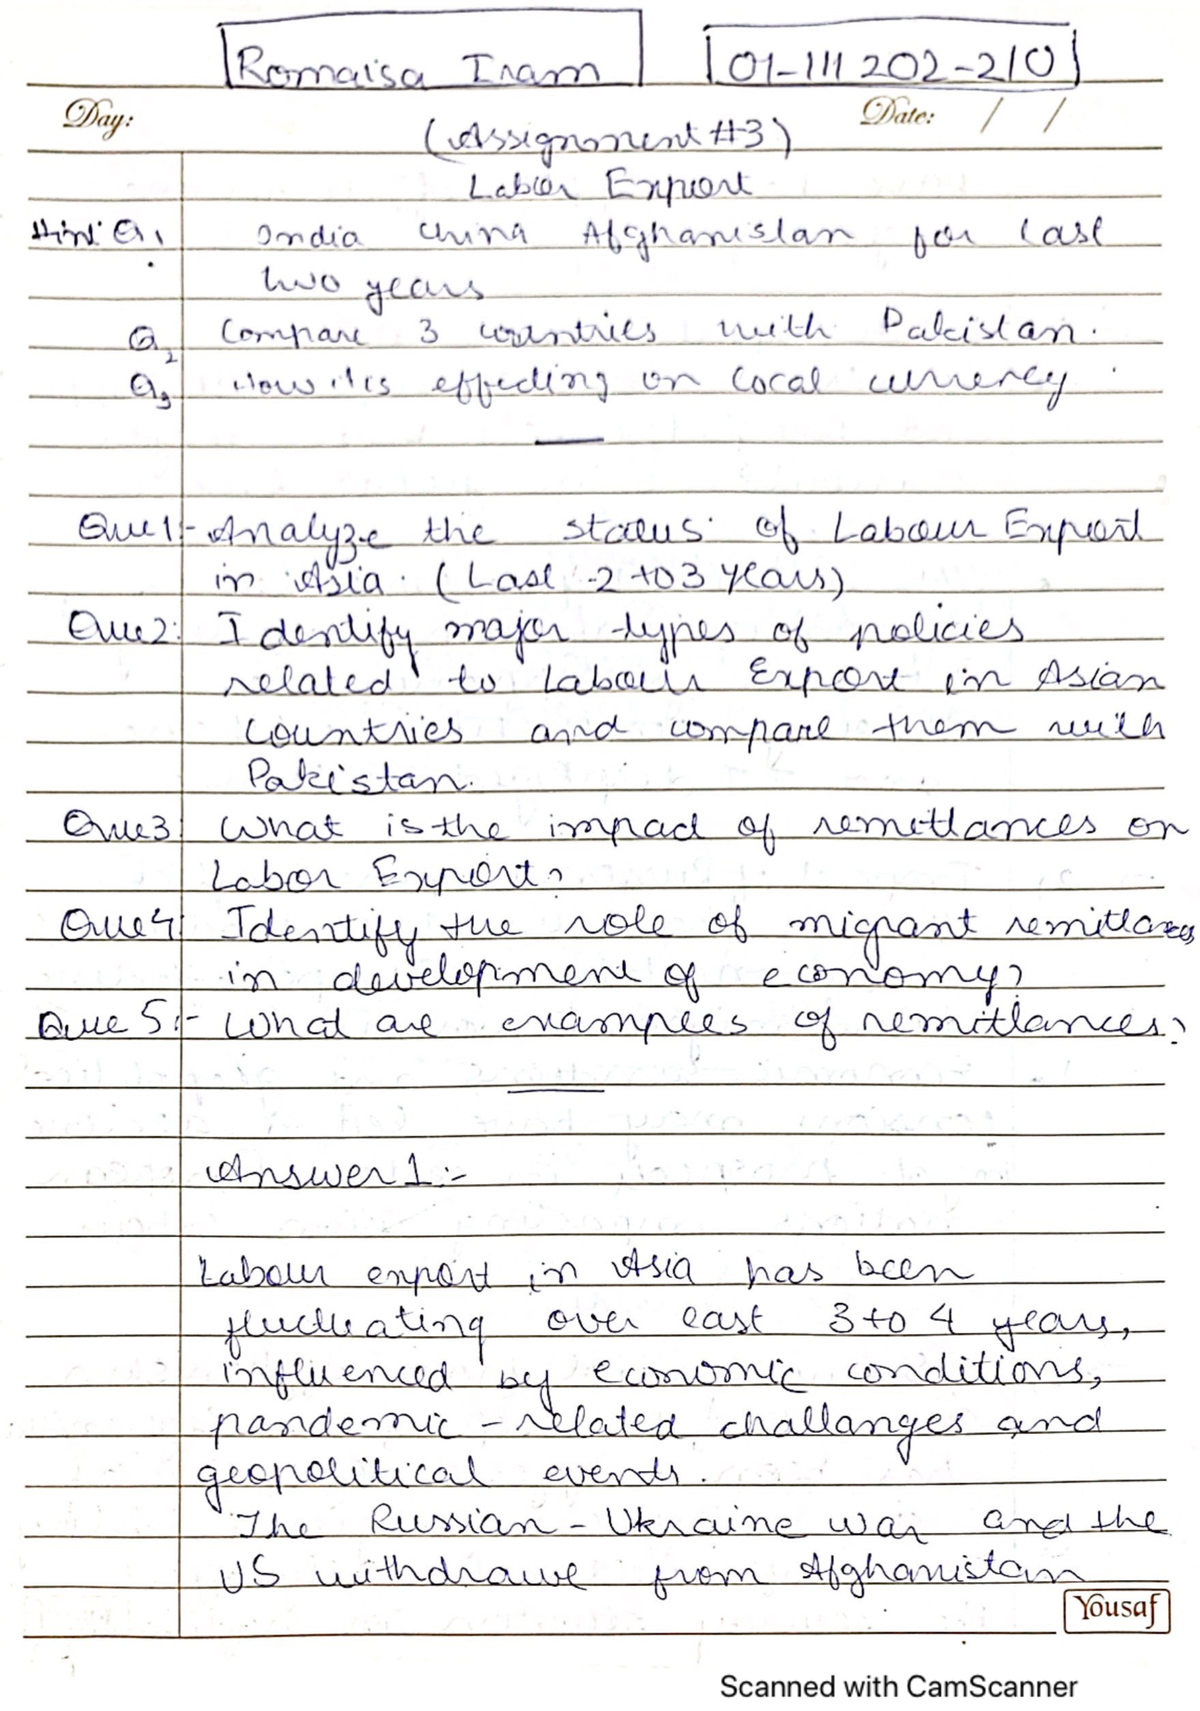 Romaisa Iram 01-111202-210
Day: Date: / /
(Assignment #3)
Labor Export
Hint Q1 India China Afghanistan for last
two years
Q2 Compare 3 countries with Pakistan.
Q3 How it is effecting on local currency.
Que 1:- Analyze the status of Labour Export
in Asia. (Last 2 to 3 years)
Que 2: Identify major types of policies
related to Labour Export in Asian
Countries and compare them with
Pakistan.
Que 3 What is the impact of remittances on
Labor Export?
Que 4 Identify the role of migrant remittances
in development of economy?
Que 5:- What are examples of remittances?
Answer 1:-
Labour export in Asia has been
fluctuating over last 3 to 4 years,
influenced by economic conditions,
pandemic - related challanges and
geopolitical events.
The Russian - Ukraine war and the
US withdrawe from Afghanistan
Yousaf
Scanned with CamScanner